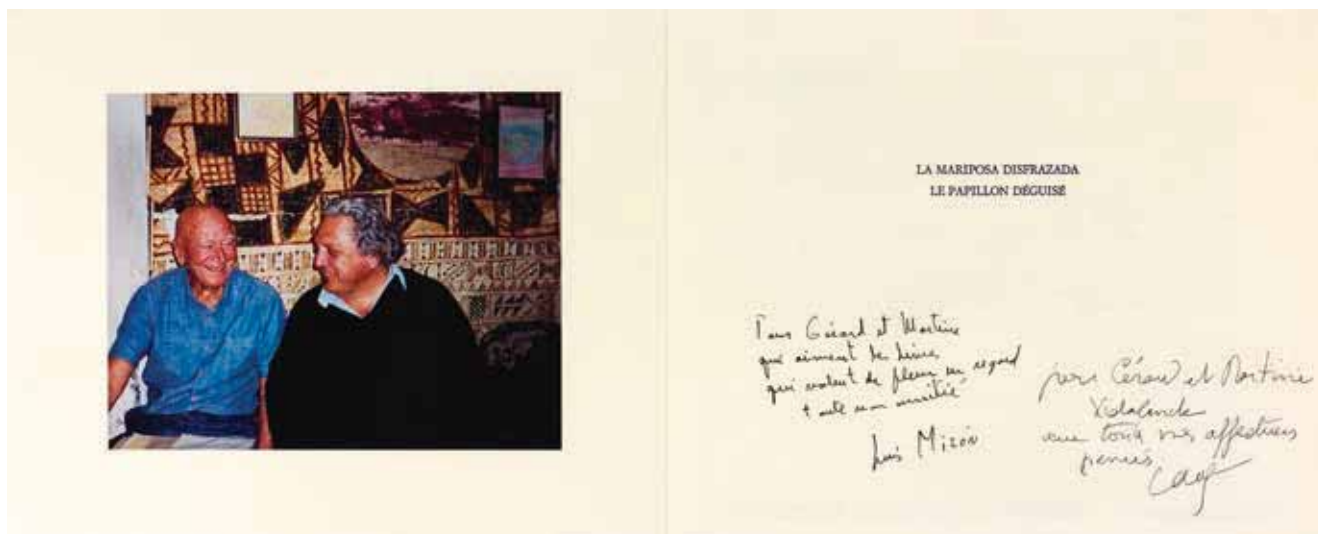 LA MARIPOSA DISFRAZADA
LE PAPILLON DÉGUISÉ
Pour Gérard et Martine
qui aiment les livres
qui volent de fleur en regard
toute mon amitié
Luis Mizón
pour Gérard et Martine
avec toutes mes affectueuses
pensées